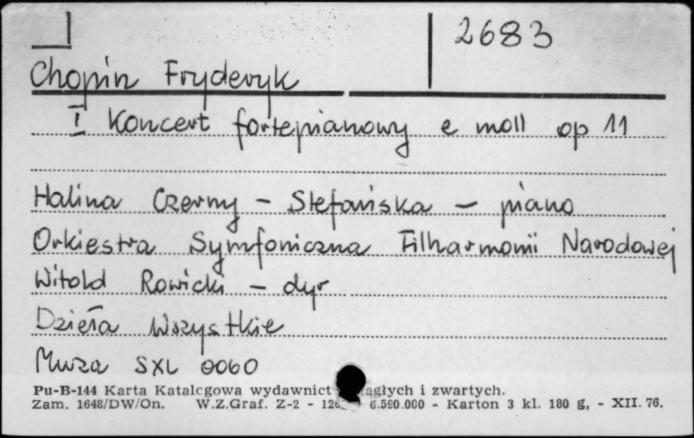 2683
Chopin Fryderyk
I Koncert fortepianowy e moll op 11
Halina Czerny - Stefańska - piano
Orkiestra Symfoniczna Filharmonii Narodowej
Witold Rowicki - dyr
Dzieła Wszystkie
Muza SXL 0060
Pu-B-144 Karta Katalogowa wydawnict ciągłych i zwartych.
Zam. 1648/DW/On. W.Z.Graf. Z-2 - 6.590.000 - Karton 3 kl. 180 g, - XII. 76.